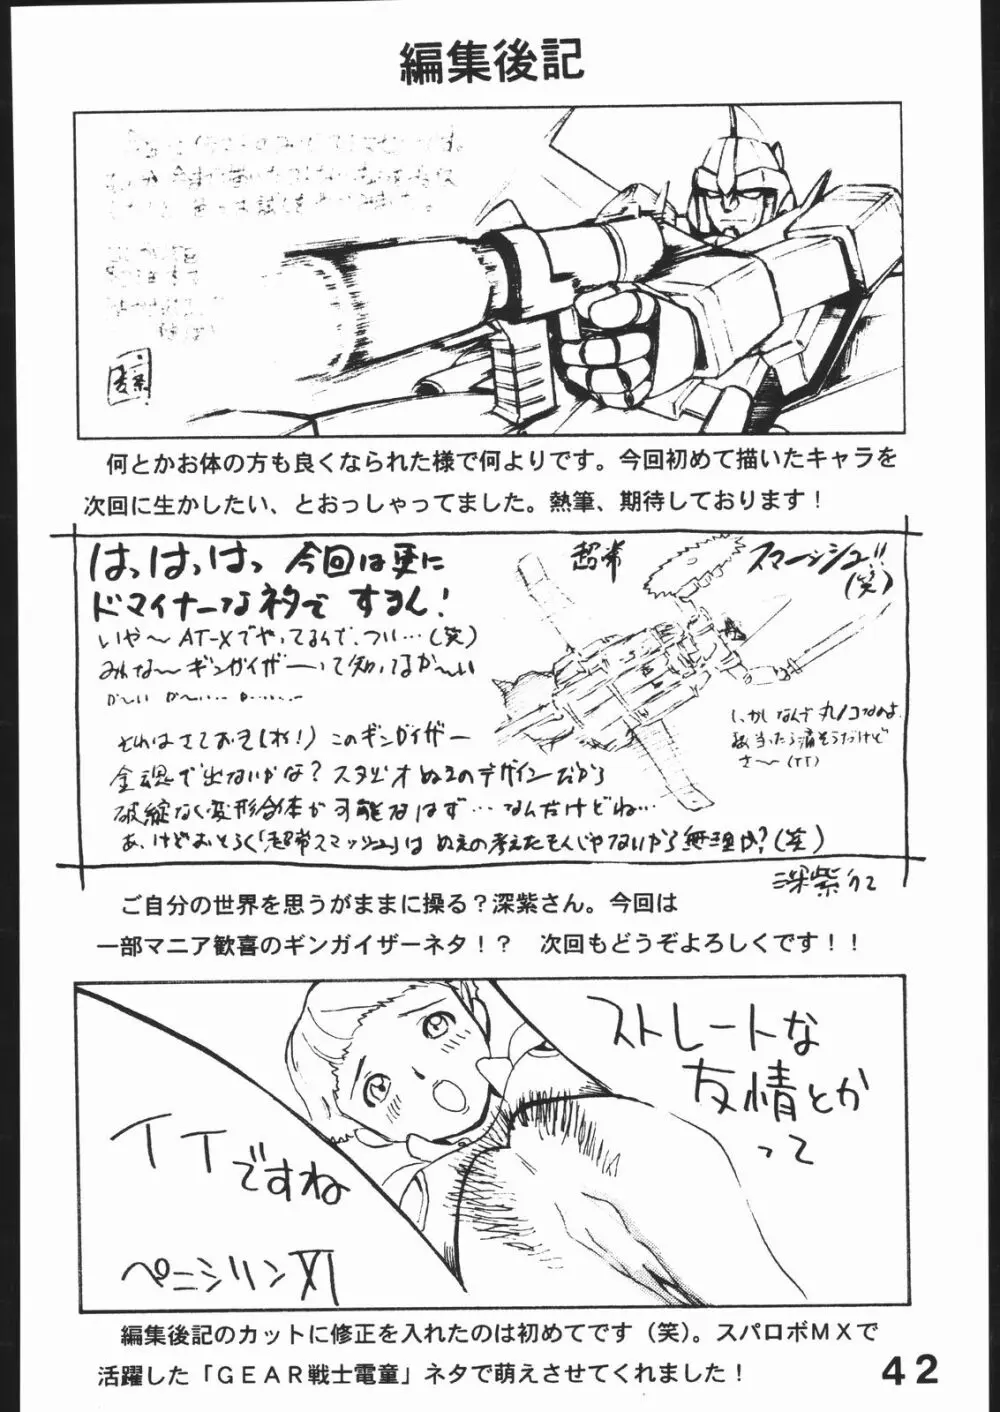 編集後記
何とかお体の方も良くなられた様で何よりです。今回初めて描いたキャラを
次回に生かしたい、とおっしゃってました。熱筆、期待しております！
はっはっはっ 今回は更に
ドマイナーなネタで するん！
いや〜 AT-Xでやってるんで、つい…(笑)
みんな〜 ギンガイザーって知ってるか〜い
か〜い か〜い…
それはさておき(ね！) このギンガイザー
金魂で出ないかな？スタジオぬえのデザインだから
破綻なく変形合体が可能なはず…なんだけどね…
あ、けどおそらく「超常スマッシュ」は ぬえの考えたもんじゃないから無理か？(笑)
超常 スマーッシュ!!
(笑)
しかしなんで丸ノコなのよ
当たら痛そうだけど
さ〜(TT)
深紫
ご自分の世界を思うがままに操る？深紫さん。今回は
一部マニア歓喜のギンガイザーネタ！？ 次回もどうぞよろしくです！！
ストレートな
友情とか
って
イイですね
ペニシリンXI
編集後記のカットに修正を入れたのは初めてです（笑）。スパロボＭＸで
活躍した「ＧＥＡＲ戦士電童」ネタで萌えさせてくれました！
42